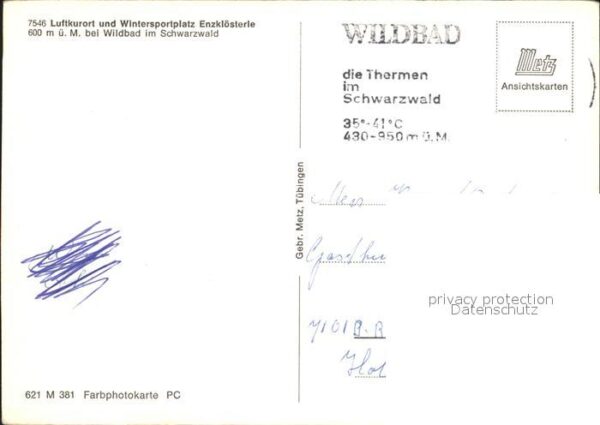 7546 Luftkurort und Wintersportplatz Enzklösterle
600 m ü. M. bei Wildbad im Schwarzwald
WILDBAD
die Thermen
im
Schwarzwald
35°-41°C
430-950 m ü. M.
Metz
Ansichtskarten
Gebr. Metz, Tübingen
privacy protection
Datenschutz
7101
621 M 381 Farbphotokarte PC